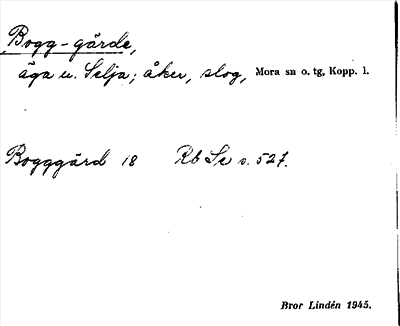 Bogg-gärde,
äga u. Selja; åker, slog, Mora sn o. tg, Kopp. l.
Bogggärd 18 Rb Se s. 527.
Bror Lindén 1945.